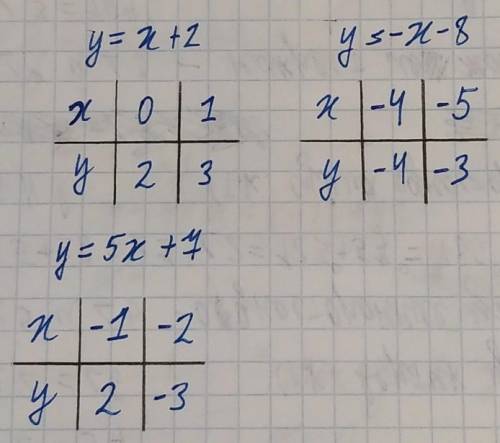 y = x + 2
x 0 1
y 2 3
y = -x - 8
x -4 -5
y -4 -3
y = 5x + 7
x -1 -2
y 2 -3